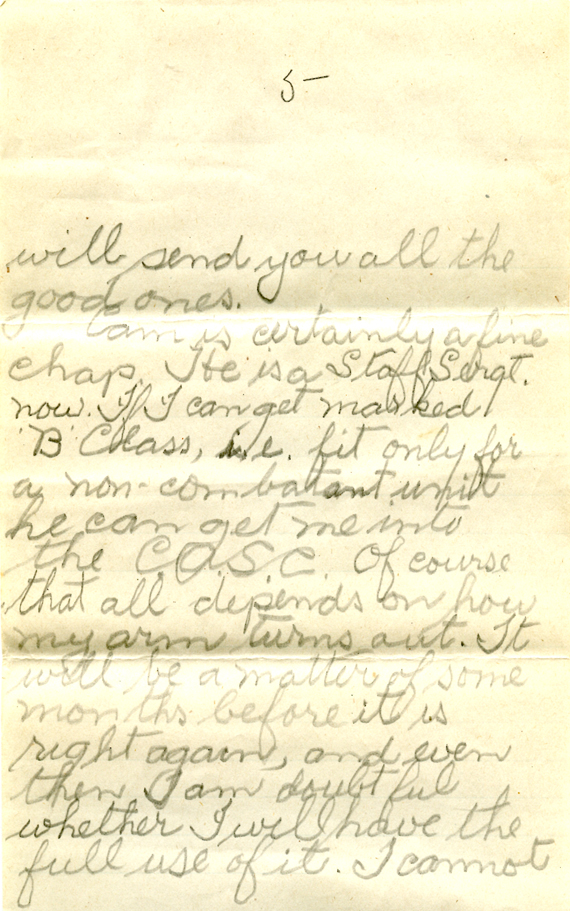 5-
will send you all the
good ones.
Cam is certainly a fine
chap. He is a Staff Sergt.
now. If I can get marked
"B" Class, i.e. fit only for
a non-combatant unit
he can get me into
the C.A.S.C. Of course
that all depends on how
my arm turns out. It
will be a matter of some
months before it is
right again, and even
then I am doubtful
whether I will have the
full use of it. I cannot